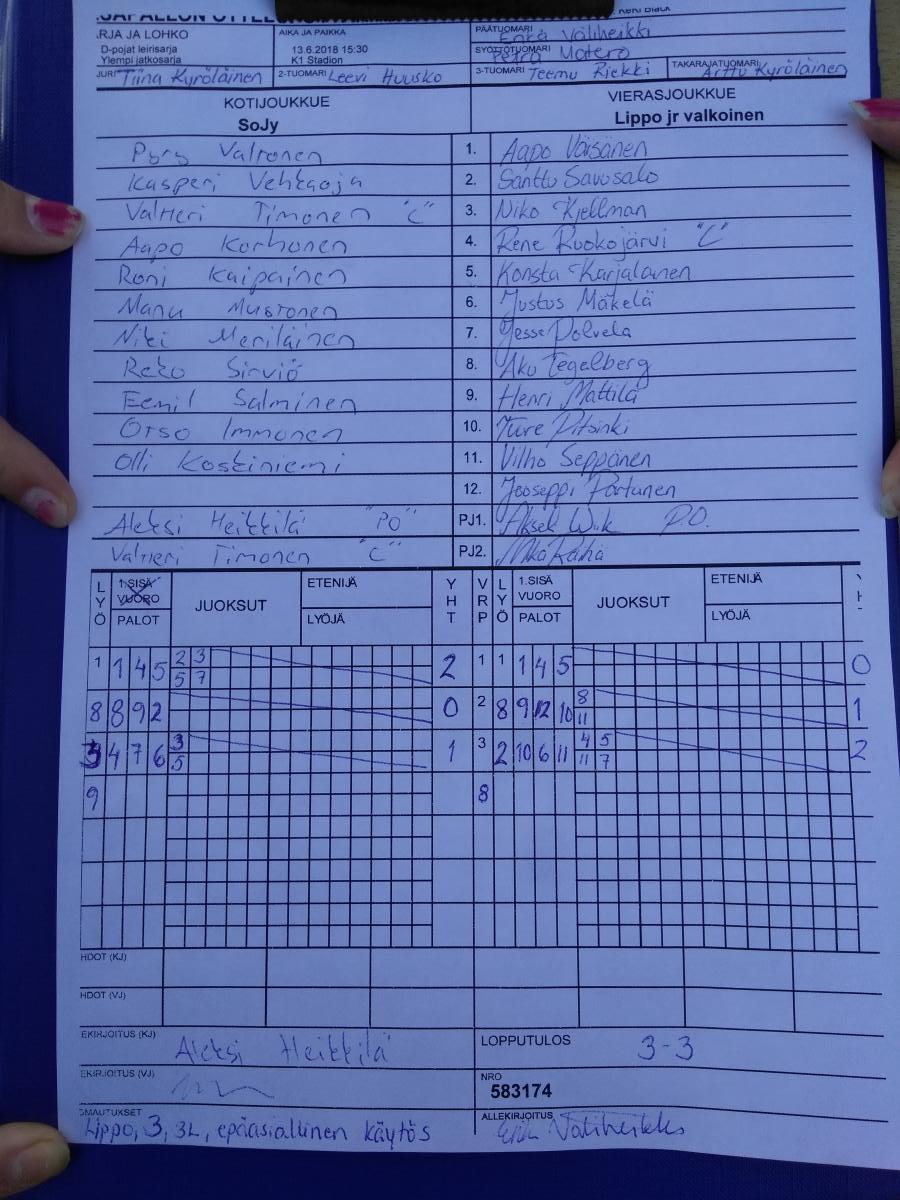 RJA JA LOHKO
D-pojat leirisarja
Ylempi jatkosarja
AIKA JA PAIKKA
13.6.2018 15:30
K1 Stadion
PÄÄTUOMARI Erika Väliheikki
SYÖTTÖTUOMARI Petra Matero
Tiina Kyröläinen
2-TUOMARI Leevi Huusko
3-TUOMARI Teemu Riekki
TAKARAJATUOMARI Arttu Kyröläinen
KOTIJOUKKUE
SoJy
VIERASJOUKKUE
Lippo jr valkoinen
Valtonen 1. Aapo Väisänen
Kasperi Vehkaoja 2. Santtu Savusalo
Valtteri Timonen "C" 3. Niko Kjellman
Aapo Korhonen 4. Rene Ruokojärvi "C"
Roni Kaipainen 5. Konsta Karjalainen
Manu Mustonen 6. Justus Mäkelä
Niki Meriläinen 7. Jesse Polvela
Reko Sirviö 8. Aku Tegelberg
Eemil Salminen 9. Henri Mattila
Orso Immonen 10. Tuure Pitsinki
Olli Koskiniemi 11. Vilho Seppänen
12. Jooseppi Partunen
Aleksi Heikkilä "PO" PJ1. Aksel Wik P.O.
Valtteri Timonen "C" PJ2.
LYÖ 1.SISÄ VUORO PALOT JUOKSUT ETENIJÄ LYÖJÄ YHT VRP LYÖ 1.SISÄ VUORO PALOT JUOKSUT ETENIJÄ LYÖJÄ
1 1 4 5 2 3 2 1 1 1 4 5 0
5 7
8 8 9 2 0 2 8 9 12 10 8 1
11
3 4 7 6 3 1 3 2 10 6 11 4 5 2
5 11 7
9 8
HDOT (KJ)
HDOT (VJ)
EKIRJOITUS (KJ) Aleksi Heikkilä
LOPPUTULOS 3-3
EKIRJOITUS (VJ)
NRO
583174
OMAUTUKSET
Lippo, 3, 3L, epäasiallinen käytös
ALLEKIRJOITUS
Erika Väliheikki